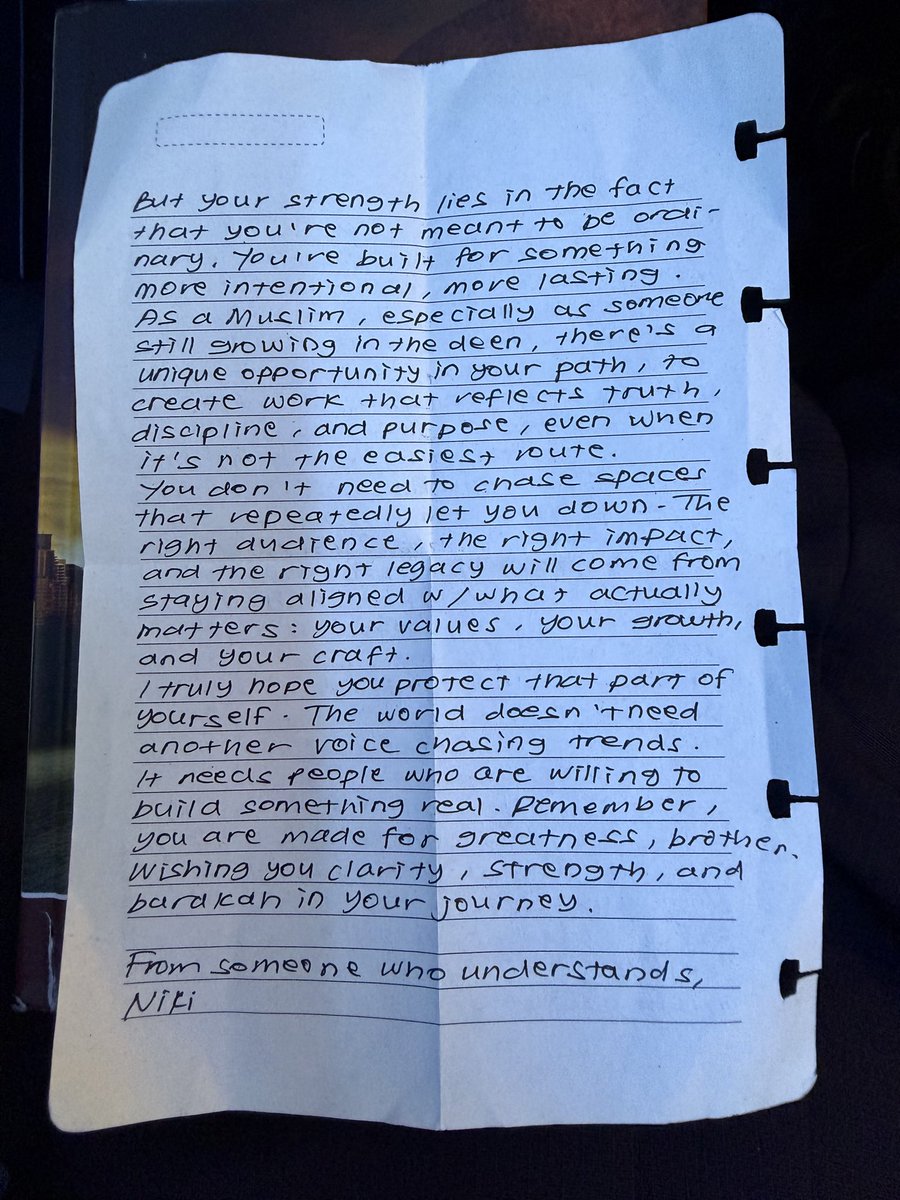 But your strength lies in the fact
that you're not meant to be ordi-
nary. You're built for something
more intentional, more lasting.
As a Muslim, especially as someone
still growing in the deen, there's a
unique opportunity in your path, to
create work that reflects truth,
discipline, and purpose, even when
it's not the easiest route.
You don't need to chase spaces
that repeatedly let you down. The
right audience, the right impact,
and the right legacy will come from
staying aligned w/what actually
matters: your values, your growth,
and your craft.
I truly hope you protect that part of
yourself. The world doesn't need
another voice chasing trends.
It needs people who are willing to
build something real. Remember,
you are made for greatness, brother.
Wishing you clarity, strength, and
barakah in your journey.
From someone who understands,
Niki